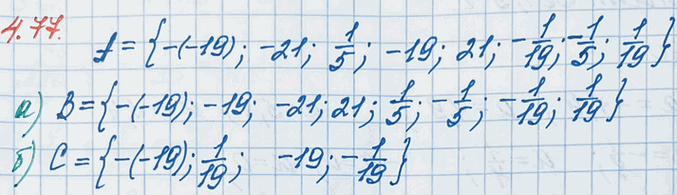 4.77.
A = {-(-19); -21; 1/5; -19; 21; -1/19; -1/5; 1/19}
а) B = {-(-19); -19; -21; 21; 1/5; -1/5; -1/19; 1/19}
б) C = {-(-19); 1/19; -19; -1/19}